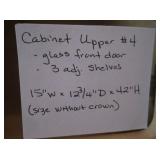 Cabinet Upper #4
- glass front door
- 3 adj. shelves
15"W x 12 3/4"D x 42"H
(size without crown)